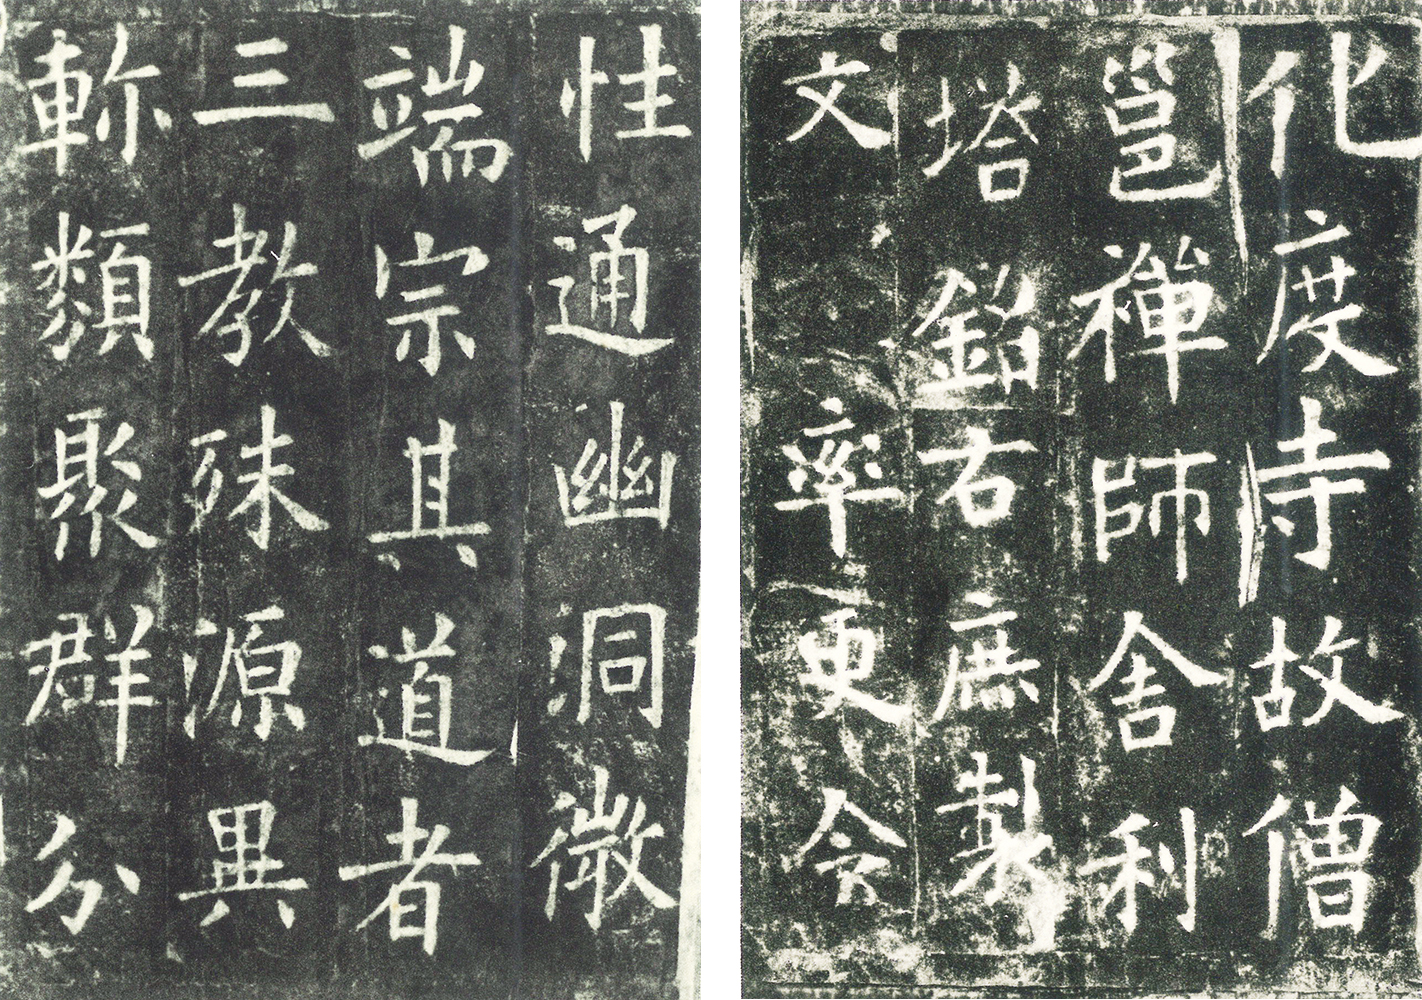 化度寺故僧
邕禪師舍利
塔銘右庶製
文 率更令
性通幽洞微
端宗其道者
三教殊源異
軫類聚群分